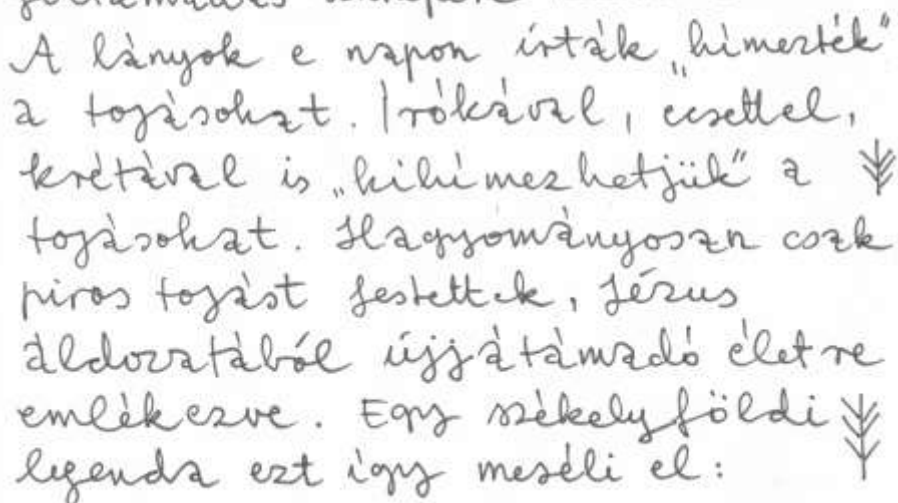 A lányok e napon írták „hímezték"
a tojásokat. Írókával, ecsettel,
krétával is „kihímezhetjük" a
tojásokat. Hagyományosan csak
piros tojást festettek, Jézus
áldozatából újjátámadó életre
emlékezve. Egy székelyföldi
legenda ezt így meséli el: